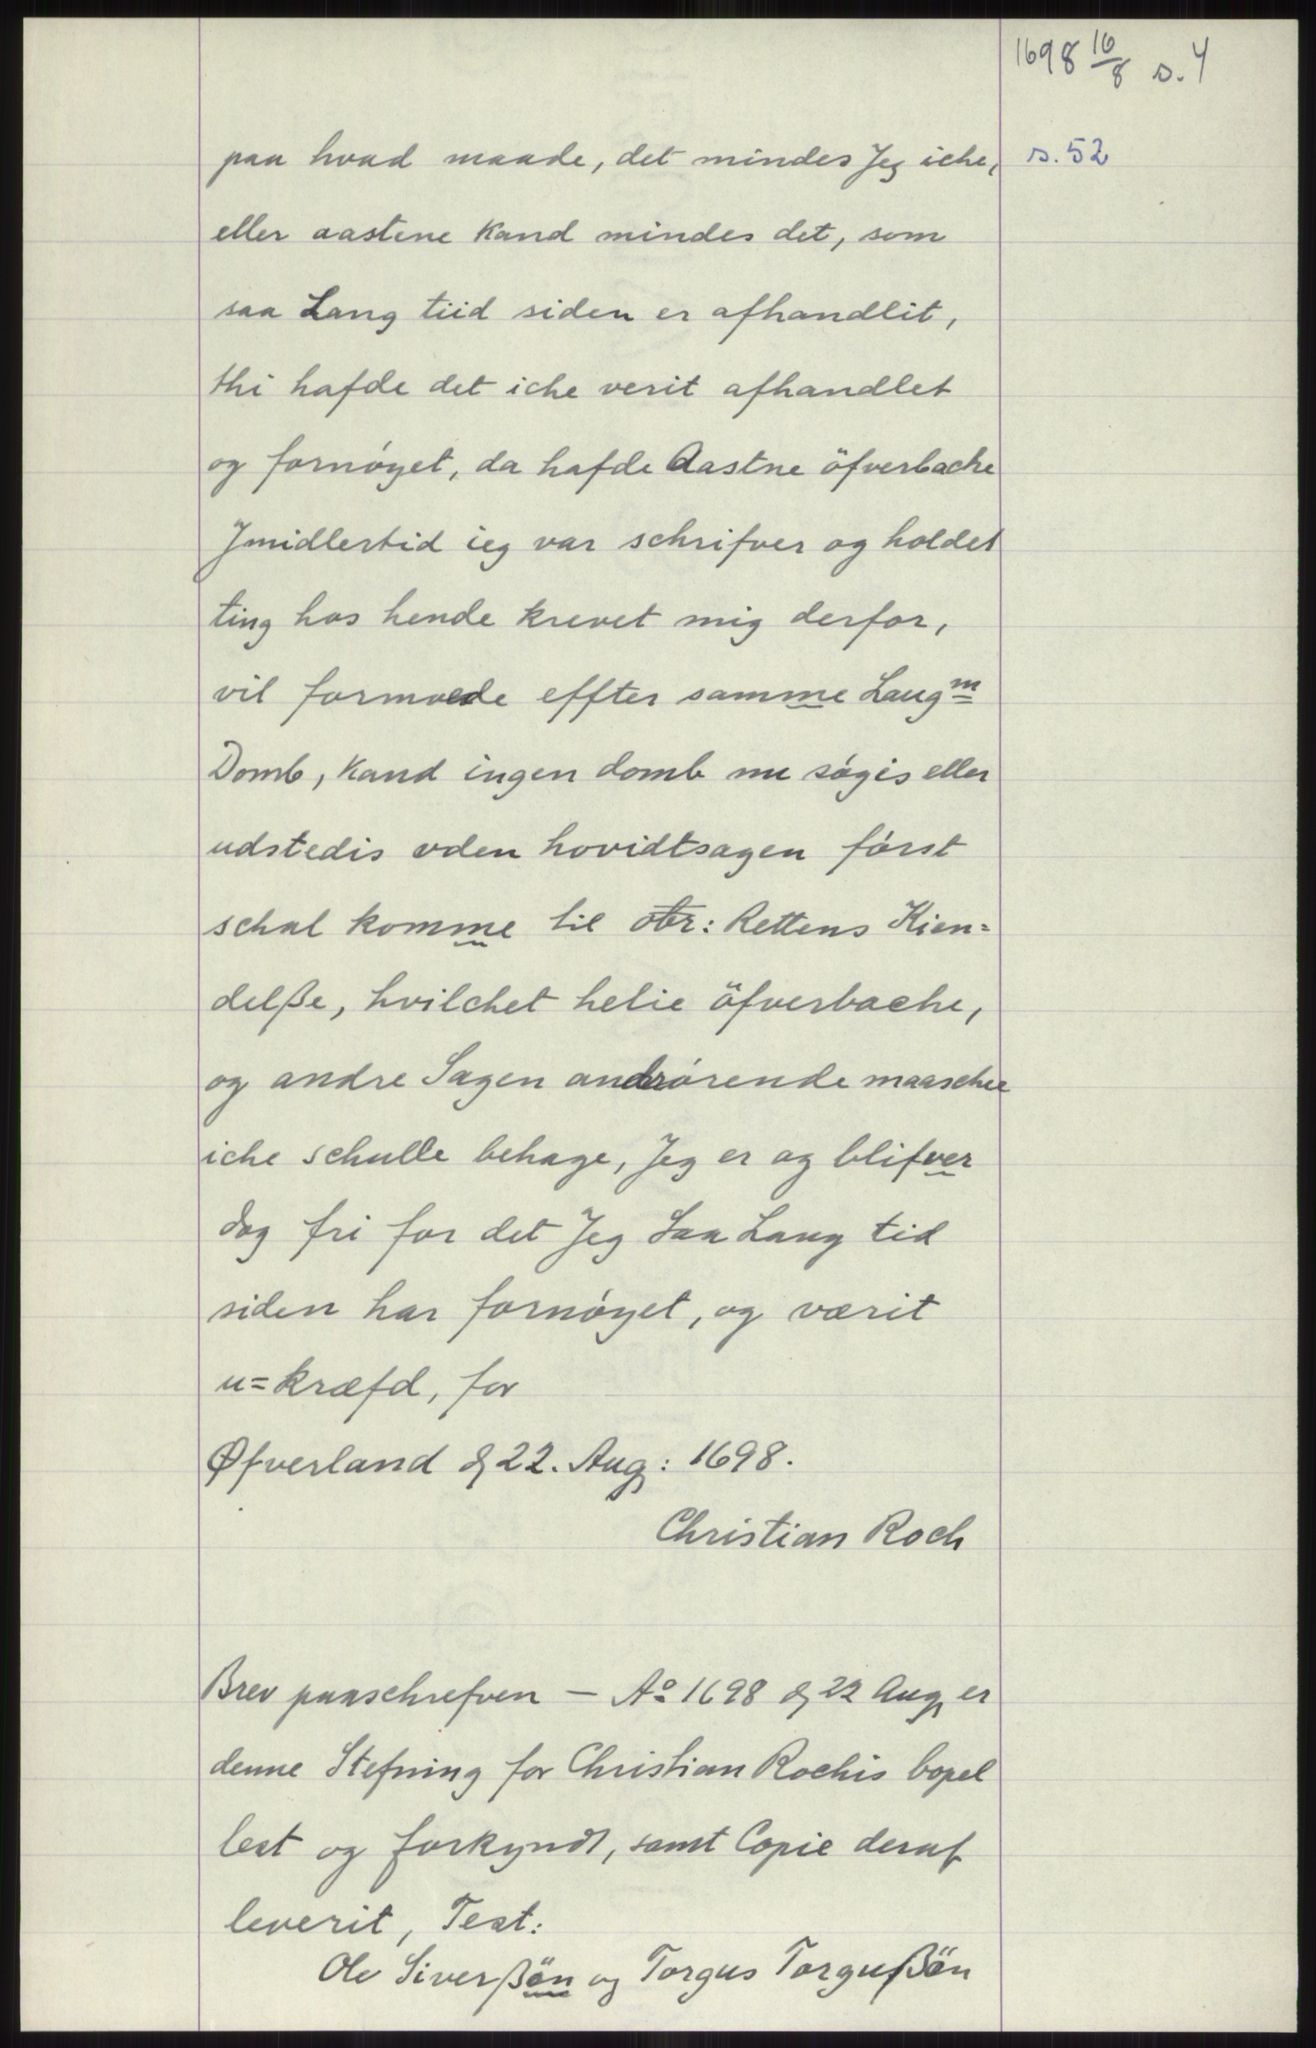 1698 16/8 s. 4
paa hvad maade, det mindes Jeg iche, s. 52
eller aastene kand mindes det, som
saa Lang tiid siden er afhandlit,
thi hafde det iche verit afhandlet
og fornøyet, da hafde Aastne öfverbache
Jmidlertid ieg var schrifver og holdet
ting hos hende krevet mig derfor,
vil formoede effter samme Laugm
Domb, kand ingen domb nu søgis eller
udstedis uden hovidtsagen først
schal komme til obr: Rettens Kien=
delße, hvilchet helie öfverbache,
og andre Sagen andrørende maaschee
iche schulle behage, Jeg er og blifver
dog fri for det Jeg Saa Lang tid
siden har fornøyet, og værit
u=kræfd, for
Øfverland d 22. Aug: 1698.
Christian Roch
Brev paaschrefven — Aº 1698 d 22 Aug er
denne Stefning for Christian Rochis bopel
lest og forkyndt, samt Copie deraf
leverit, Test:
Ole Siverßön og Torgus Torgußön